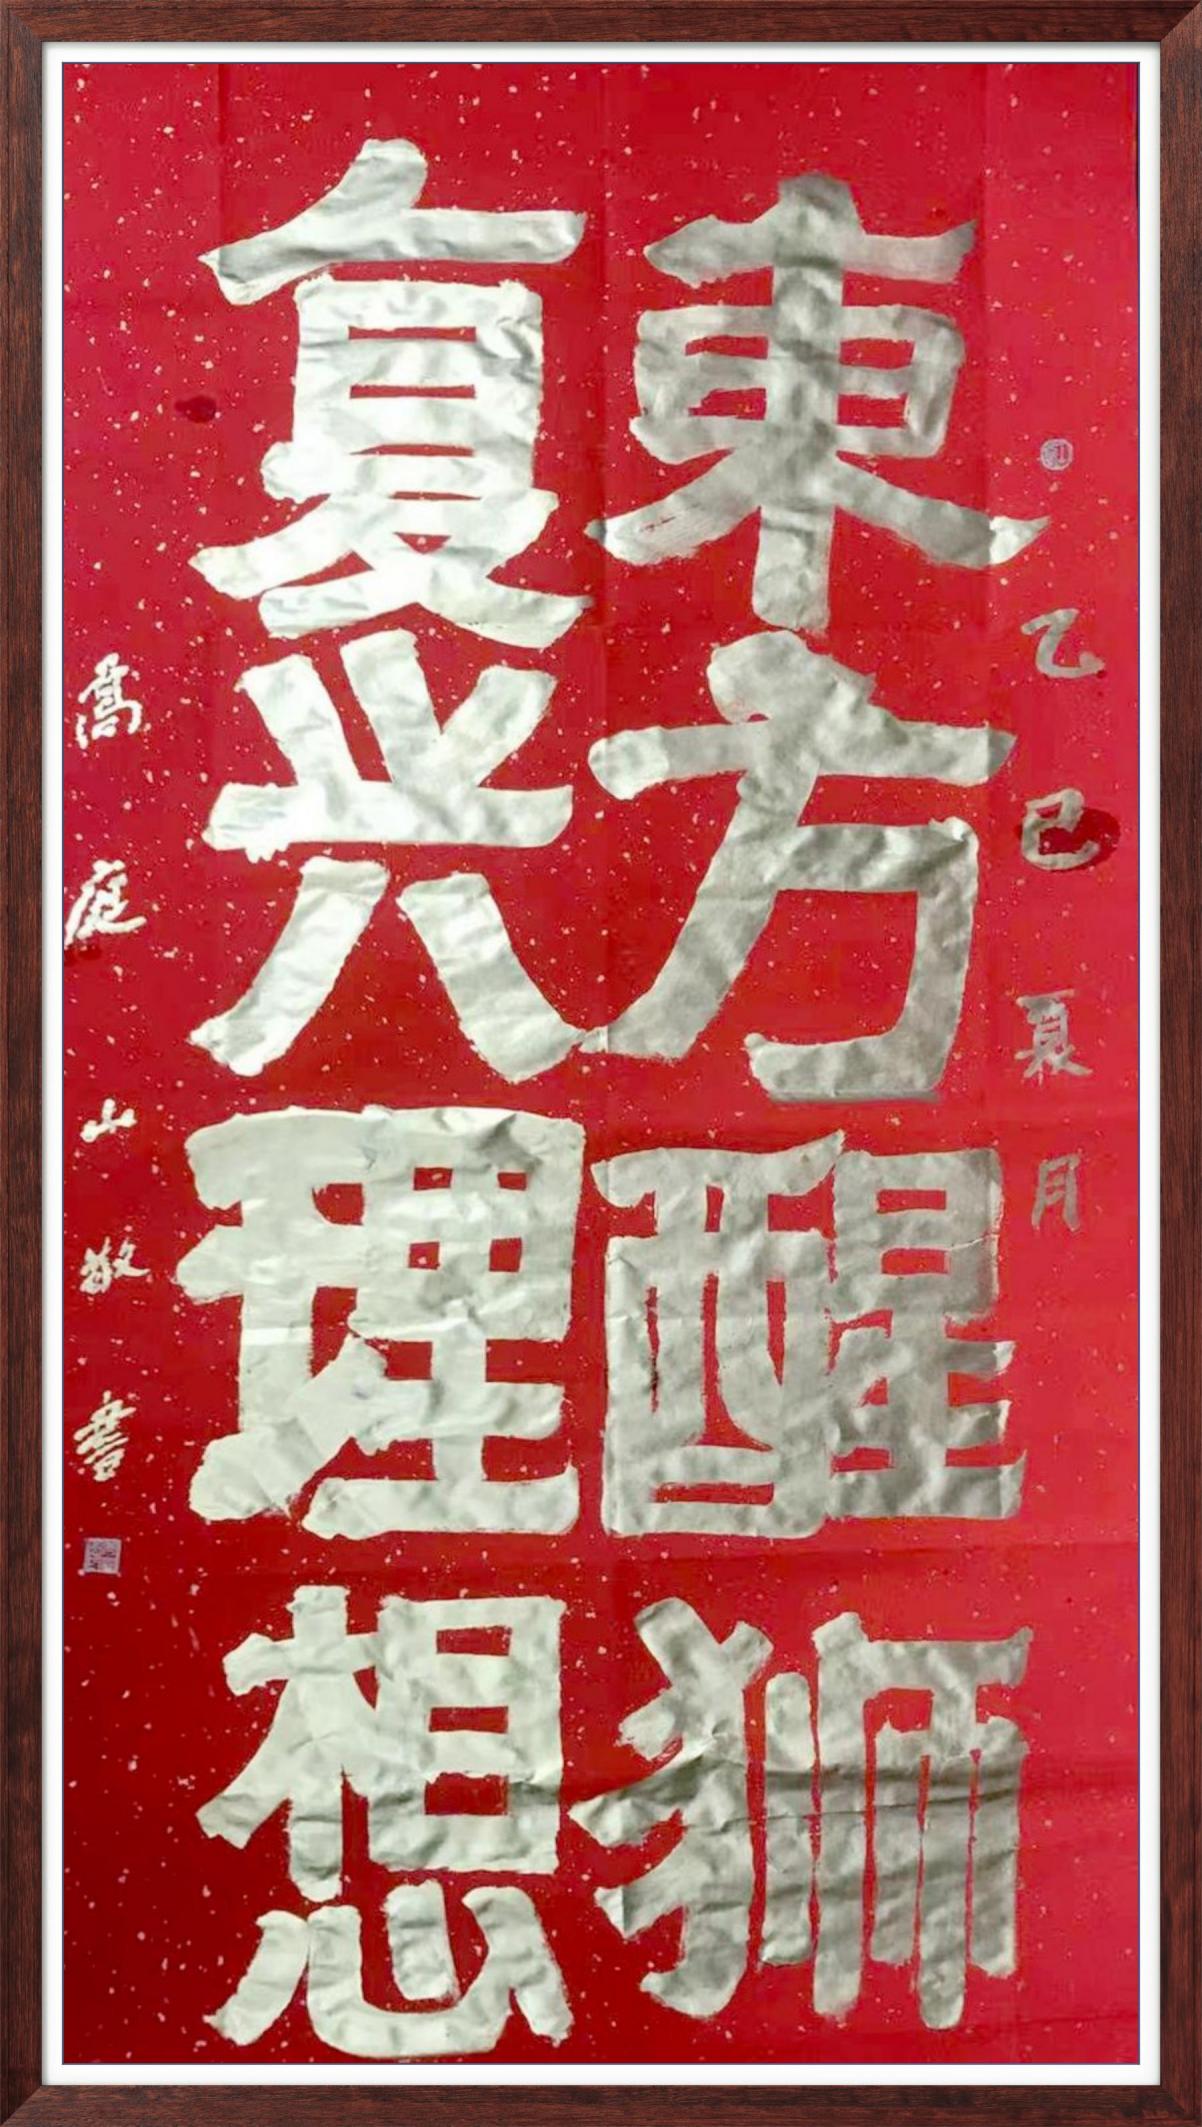 乙巳夏月
東方醒狮
复兴理想
高庭山敬書